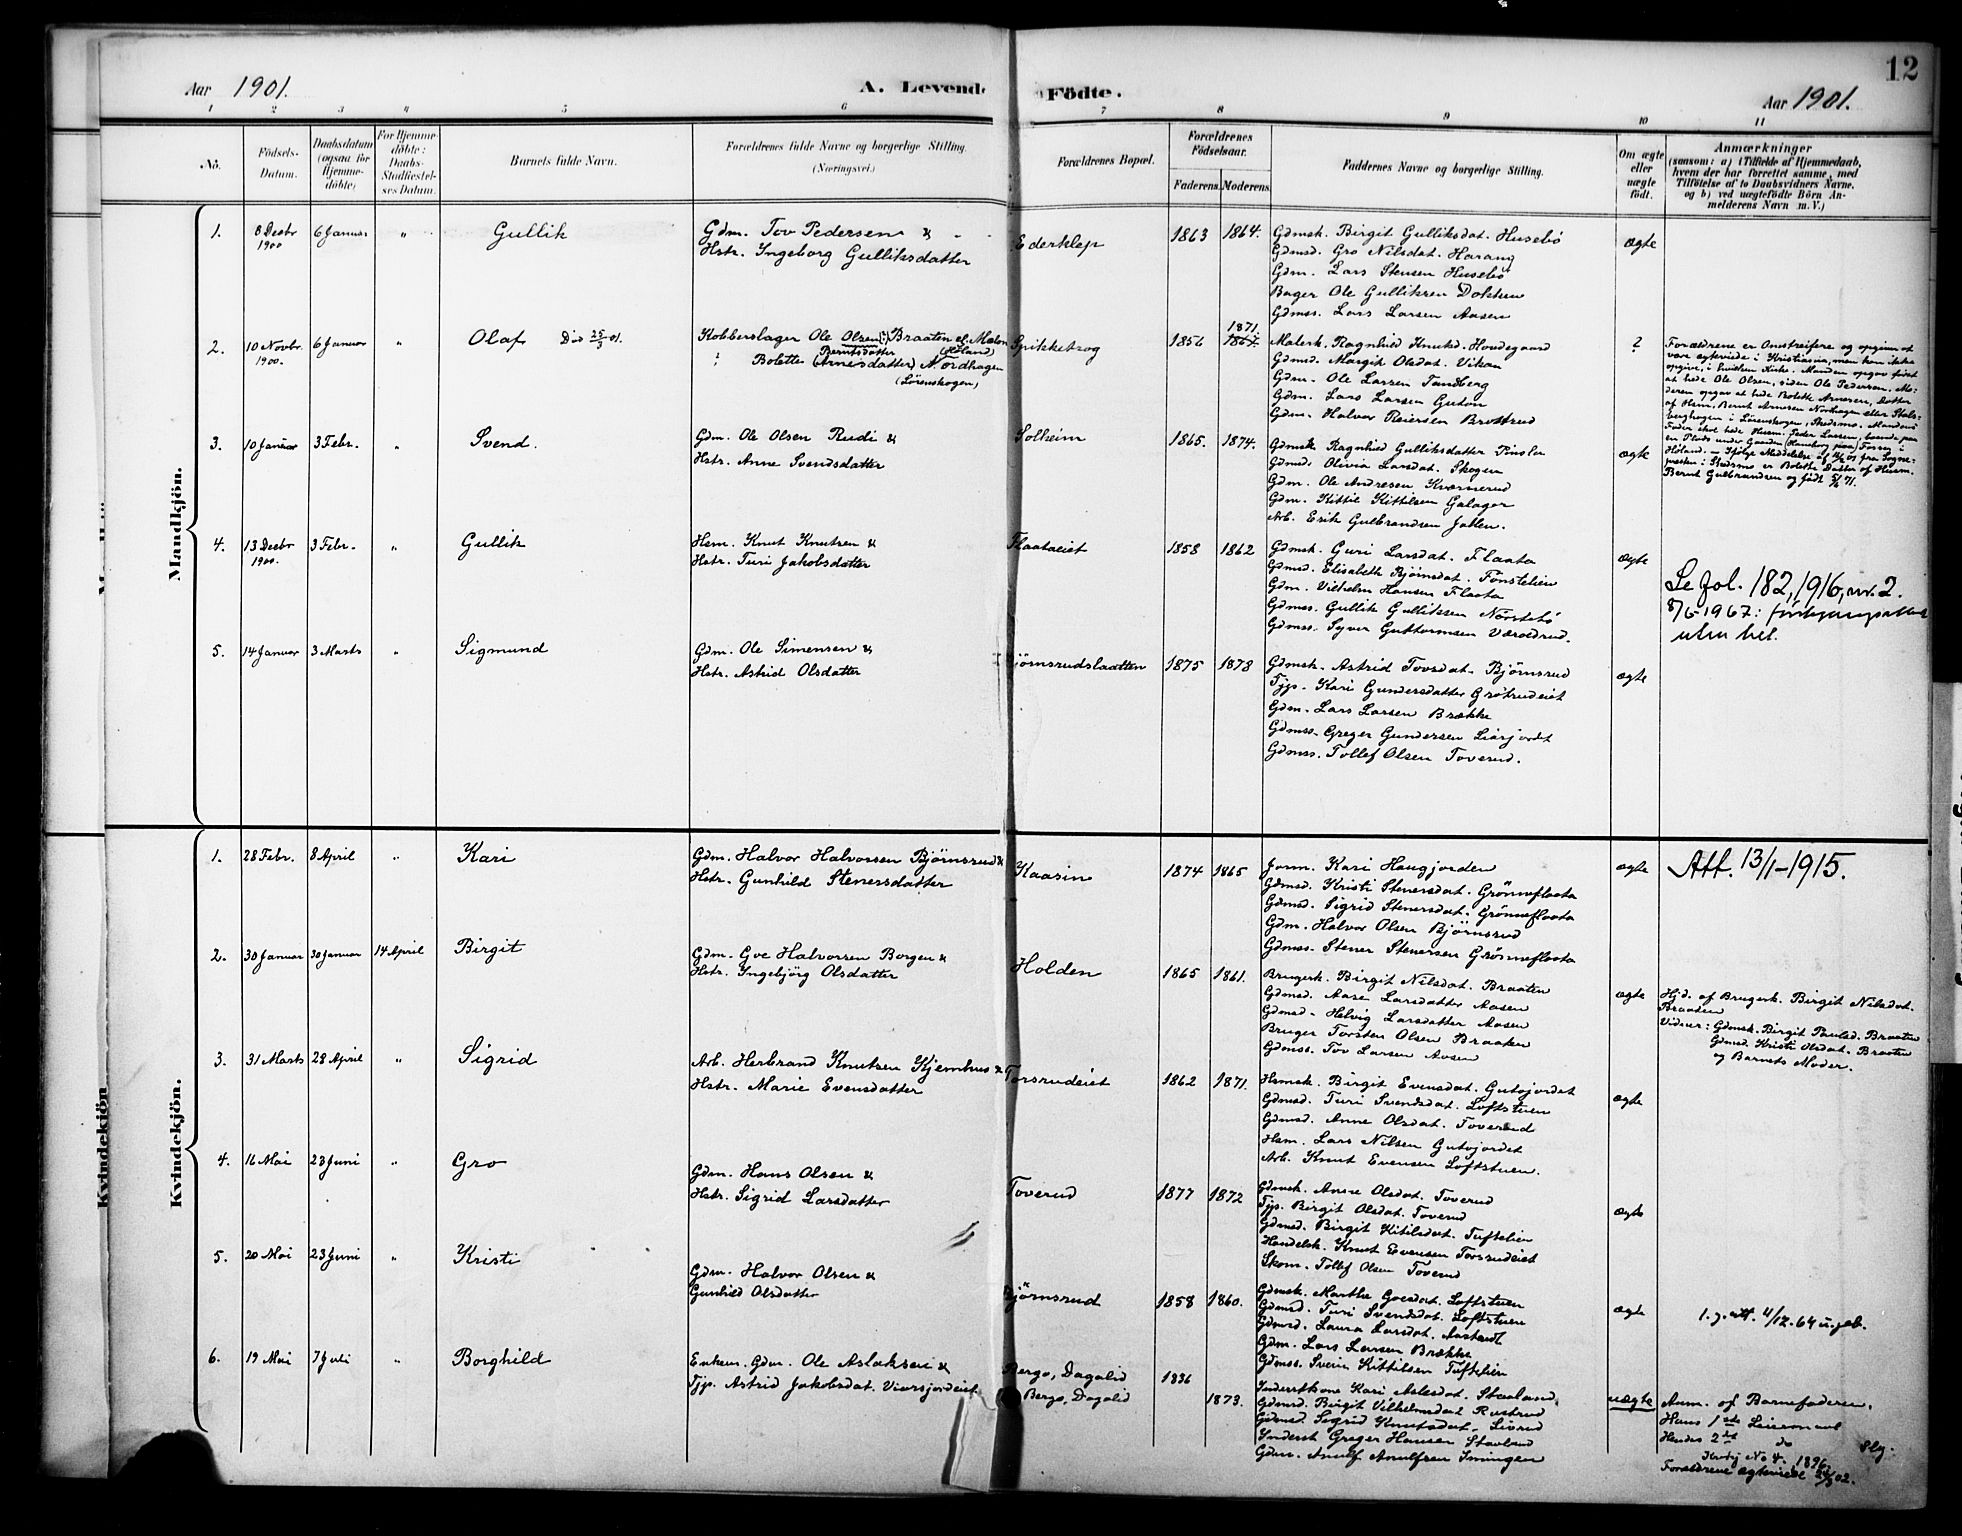 12
Aar 1901.
A. Levende Födte.
Aar 1901.
1 2 3 4 5 6 7 8 9 10 11
No.
Födsels-Datum.
Daabsdatum (ogsaa for Hjemme-döbte)
For Hjemme-döbte: Daabs-Stadfæstel-ses Datum.
Barnets fulde Navn.
Forældrenes fulde Navne og borgerlige Stilling.
(Næringsvei.)
Forældrenes Bopæl.
Forældrenes Födselsaar.
Faderens. Moderens.
Faddernes Navne og borgerlige Stilling.
Om ægte eller uægte födt.
Anmærkninger
(saasom: a) i Tilfælde af Hjemmedaab,
hvem der har forrettet samme, med
Tilföielse af to Daabsvidners Navne,
og b) ved uægtefödte Börn An-
melderens Navn m. V.)
Mandkjön.
1. 8 Decbr 1900 6 Januar " Gullik
Gdm. Tov Pedersen &
Hstr. Ingeborg Gulliksdatter
Ederklep 1863 1864.
Gdmsk. Birgit Gulliksdat. Husebö
Gdmsd. Gro Nilsdat. Harang
Gdm. Lars Stensen Husebö
Bager Ole Gulliksen Dokken
Gdmss. Lars Larsen Aasen
ægte
2. 10 Novbr. 1900. 6 Januar " Olaf Död 25/3 01.
Kobberslager Ole Olsen (?) Braaten el. Malm
Berntsdatter (Höland)
Bolette (Arnesdatter) Nordhagen
(Lörenskogen)
Spikketrog 1856 1871. 1867.
Malerk. Ragnhild Knutsd. Hovdegaard
Gdmsd. Margit Olsdat. Vikan
Gdm. Ole Larsen Tandberg
Gdm. Lars Larsen Guton
Gdm. Halvor Reiersen Brostrud
?
Forældrene er Omstreifere og opgives at
være ægteviede i Kristiania, men kan ikke
opgive, i hvilken Kirke. Manden opgav först
at hede Ole Olsen, siden Ole Pedersen. Mo-
deren opgav at hede Bolette Arnesen, Datter
af Hsm. Bernt Arnesen Northagen eller Stals-
berghagen i Lörenskogen, Skedsmo. Mandens
Fader skal hede Husm. Peder Larsen, boende paa
en Plads under Gaarden
Höland. - Ifölge Meddelelse af fra Sogne-
presten i Skedsmo er Bolette Datter af Husm.
Bernt Gulbrandsen og födt 71.
3. 10 Januar 3 Febr. " Svend.
Gdm. Ole Olsen Rudi &
Hstr. Anne Svendsdatter
Solheim 1865. 1874.
Gdmsk. Ragnhild Gulliksdatter Tinsla
Gdmsd. Olivia Larsdat. Skogen
Gdm. Ole Andresen Kværnerud
Gdm. Kittil Kittilsen Galager
Arb. Erik Gulbrandsen Jallen.
ægte
4. 13 Decbr 1900. 3 Febr. " Gullik
Hsm. Knut Knutsen &
Hstr. Turi Jakobsdatter
Flaataeiet 1858 1862
Gdmsk. Guri Larsdat. Flaata
Gdmsd. Elisabeth Björnsdat. Fönstelien
Gdm. Vilhelm Hansen Flaata
Gdmss. Gullik Gulliksen Nörstebö
Gdmss. Syver Guttormsen Væraldrud.
ægte
Se fol. 182, 1916, nr. 2.
8/6-1967: fødselsattest
uten bet.
5. 14 Januar 3 Marts " Sigmund
Gdm. Ole Simensen &
Hstr. Astrid Olsdatter
Björnsrudslaatten 1875 1878
Gdmsk. Astrid Tovsdat. Björnsrud
Tjp. Kari Gundersdatter Grötrudeiet
Gdm. Lars Larsen Brække
Gdmss. Greger Gundersen Liarjordet
Gdmss. Tollef Olsen Toverud.
ægte
Kvindekjön.
1. 28 Febr. 8 April " Kari
Gdm. Halvor Halvorsen Björnsrud &
Hstr. Gunhild Stenersdatter
Kaasin 1874 1865
Jorm. Kari Haugjorden
Gdmsd. Kristi Stenersdat. Grönneflaata
Gdmsd. Sigrid Stenersdat. Grönneflaata
Gdm. Halvor Olsen Björnsrud
Gdmss. Stener Stenersen Grönneflaata
ægte
Att. 13/1-1915.
2. 30 Januar 30 Januar 14 April Birgit
Gdm. Goe Halvorsen Borgen &
Hstr. Ingebjörg Olsdatter
Holden 1865 1861.
Brugerk. Birgit Nilsdat. Braaten
Gdmsd. Aase Larsdatter Aasen
Gdmsd. Helvig Larsdatter Aasen
Bruger Torsten Olsen Braaten
Gdmss. Tov Larsen Aasen
ægte
Hjd. af Brugerk. Birgit Nilsdat.
Braaten
Vidner: Gdmsk. Birgit Paulsd. Braaten
Gdmsd. Kristi Olsdat. Braaten
og Barnets Moder.
3. 31 Marts 28 April " Sigrid
Arb. Herbrand Knutsen Kjemhus &
Hstr. Marie Evensdatter
Torsrudeiet 1862 1871.
Hsmsk. Birgit Evensdat. Gutujordet
Gdmsd. Turi Svendsdat. Loftstuen
Gdmsd. Anne Olsdat. Toverud
Hsm. Lars Nilsen Gutujordet
Arb. Knut Evensen Loftstuen.
ægte
4. 16 Mai 23 Juni " Gro
Gdm. Hans Olsen &
Hstr. Sigrid Larsdatter
Toverud 1877 1872
Gdmsk. Anne Olsdat. Toverud
Tjp. Birgit Olsdat. Toverud
Gdmsd. Birgit Kitilsdat. Tuftelien
Handelsk. Knut Evensen Torsrudeiet
Skom. Tollef Olsen Toverud
ægte
5. 20 Mai 23 Juni " Kristi
Gdm. Halvor Olsen &
Gunhild Olsdatter
Björnsrud 1858 1860.
Gdmsk. Marthe Goesdat. Loftstuen
Gdmsd. Turi Svendsdat. Loftstuen
Gdmsd. Laura Larsdat. Aasland
Gdm. Lars Larsen Brække
Gdmss. Svein Kittilsen Tuftelien
ægte
1. g. att. 4/12.64 u. geb.
6. 19 Mai 7 Juli " Borghild
Enkem. Gdm. Ole Aslaksen &
Tjp. Astrid Jakobsdat. Viersjordeiet
Bergo, Dagalid 1836
Bergo, Dagalid 1873.
Inderstkone Kari Aslesdat. Staaland
Gdmsd. Birgit Vilhelmsdat Rustrud
Gdmsd. Sigrid Knutsdat. Livrud
Inderst Greger Hansen Stavlund
Gdm. Arnulf Arnulfsen Imingen
uægte
Anm. af Barnefaderen.
Hans 1ste Leiermaal
Hendes 2det do
No 4. 1896.
Forældrene ægteviede 02.